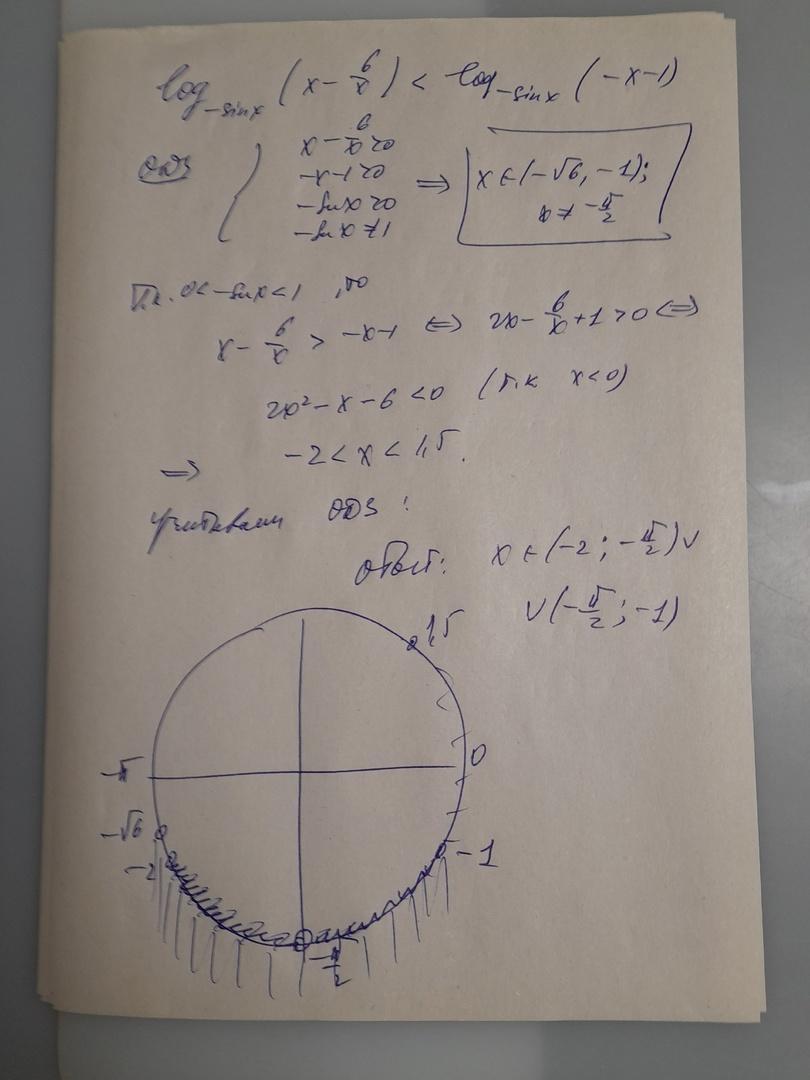 log_{-sinx} (x - 6/x) < log_{-sinx} (-x-1)
ОДЗ
x - 6/x > 0
-x-1>0
-sinx>0
-sinx≠1
⇒ x ∈ (-√6, -1);
x ≠ -π/2
Т.к. 0<-sinx<1, то
x - 6/x > -x-1 ⇔ 2x - 6/x + 1 > 0 ⇔
2x² - x - 6 < 0 (т.к x<0)
⇒ -2 < x < 1,5.
Учитывая ОДЗ:
Ответ: x ∈ (-2; -π/2) ∪
∪ (-π/2; -1)
1,5
-π
0
-√6
-2
-1
-π/2